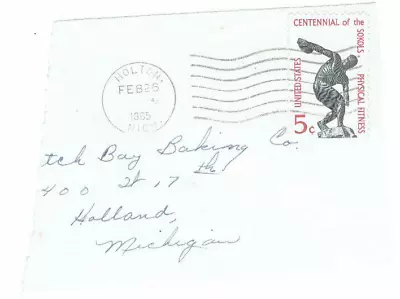 CENTENNIAL of the SOKOLS, PHYSICAL FITNESS
UNITED STATES
5c
HOLTON,
FEB 26
1965
MICH.
tch Bay Baking Co.
400 W, 17th
Holland,
Michigan